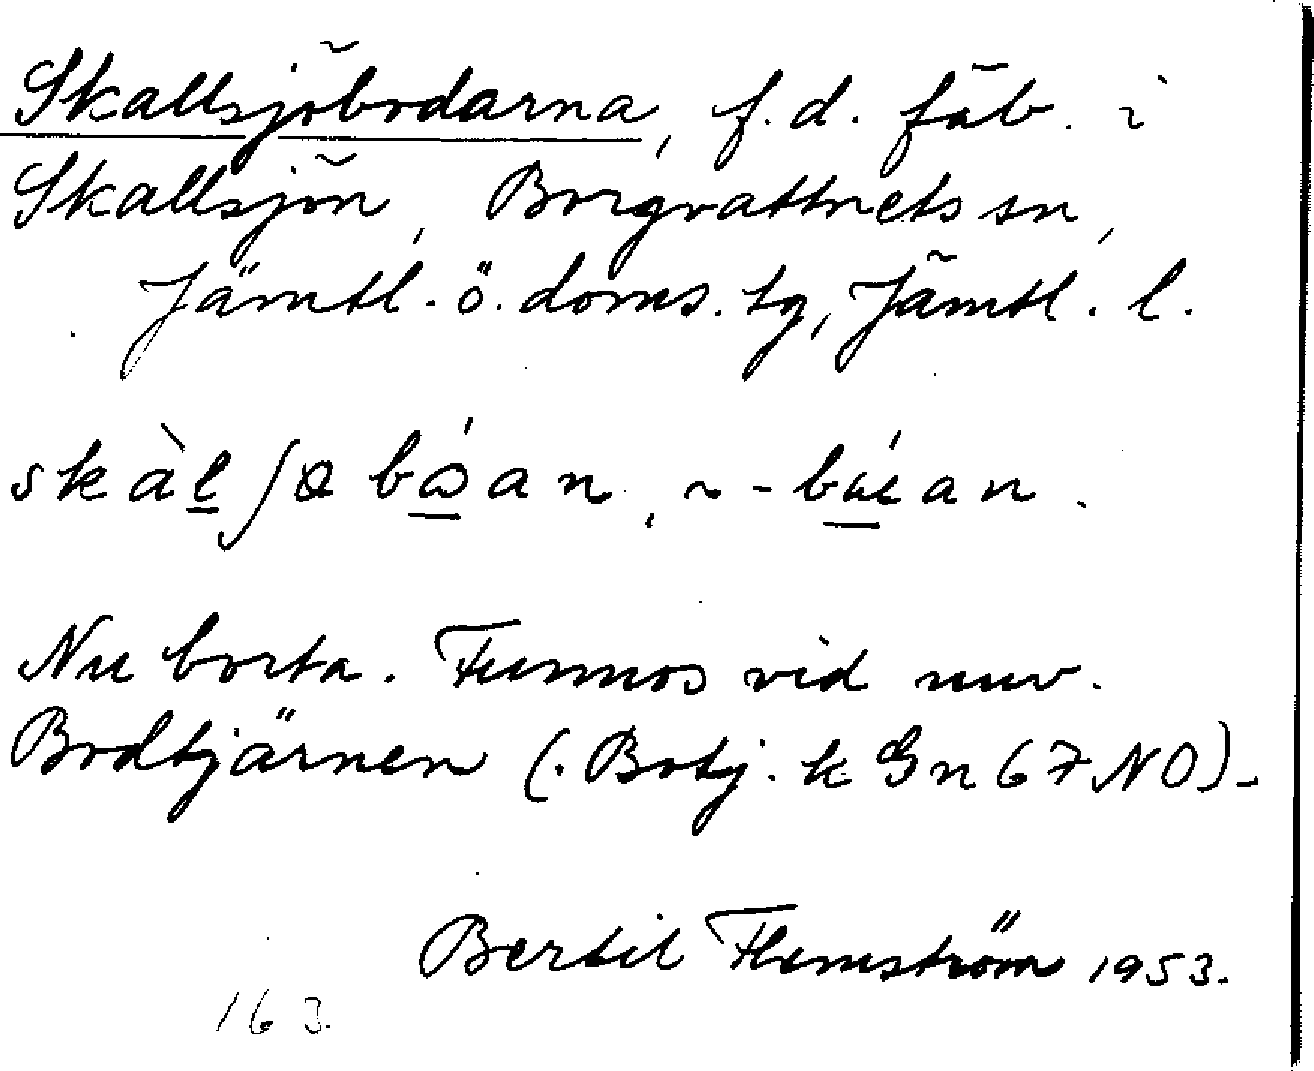 Skallsjöbodarna, f.d. fäb. i
Skallsjön, Borgvattnets sn,
Jämtl. ö. doms. tg, Jämtl. l.
Nu borta. Funnos vid nuv.
Bodtjärnen (. Botj. k Gn 67 NO).
Bertil Flemström 1953.
163.